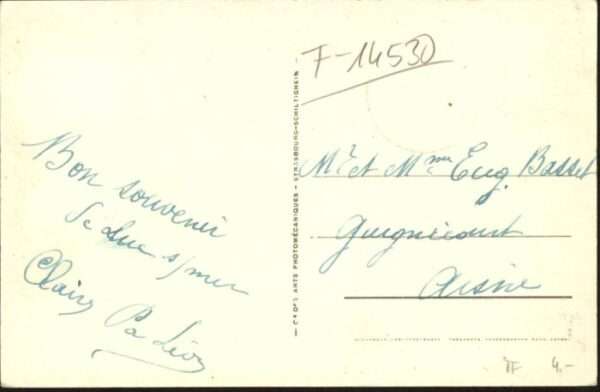 Bon souvenir
de Luc s/mer
Claire Pa Léon
— Cie DES ARTS PHOTOMÉCANIQUES - STRASBOURG-SCHILTIGHEIM —
F-14530
Mr et Mme Eug. Basset
Guignicourt
Aisne
TF 4.-